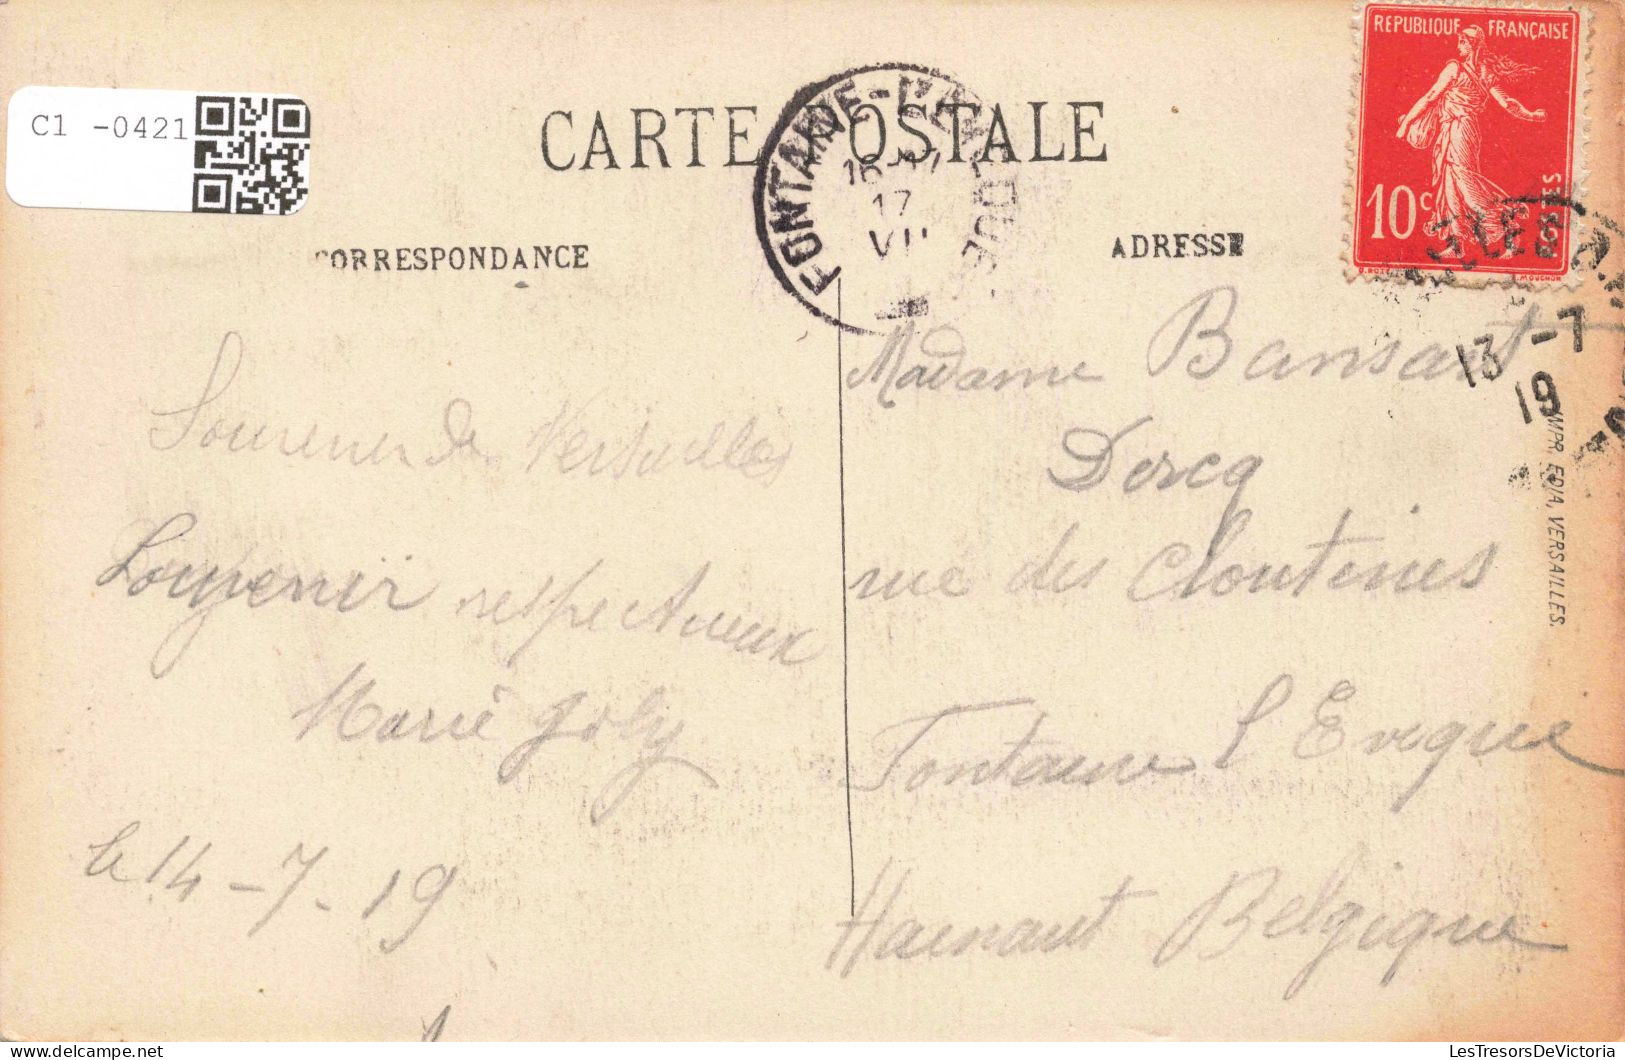 C1 -0421
CARTE POSTALE
CORRESPONDANCE
ADRESSE
REPUBLIQUE FRANÇAISE
10 c
POSTES
O. ROTY
L. MOUCHON
FONTAINE-L'EVEQUE
17
VII
13 -7
19
Souvenir de Versailles
Souvenir respectueux
Marie Joly
le 14-7-19
Madame Bansart
Dercq
rue des Clouteries
Fontaine l'Eveque
Hainaut Belgique
IMPR. EDIA, VERSAILLES.
LesTresorsDeVictoria